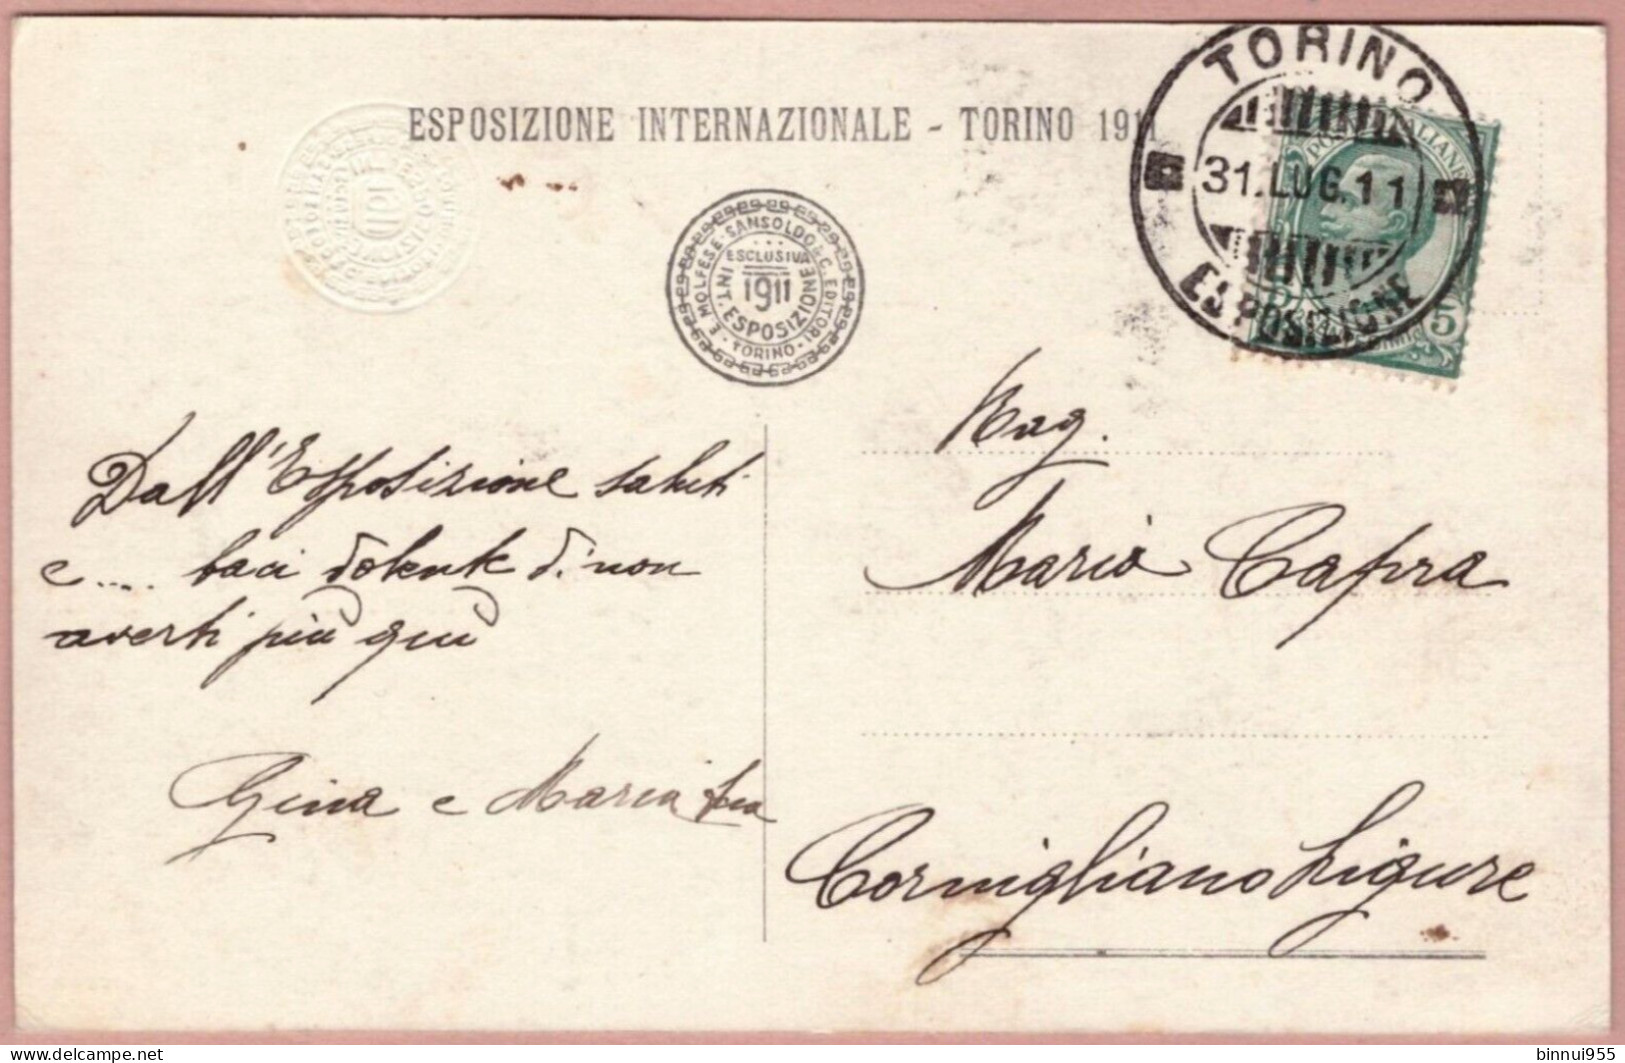 ESPOSIZIONE INTERNAZIONALE - TORINO 1911
TORINO
31.LUG.11
ESPOSIZIONE
POSTE ITALIANE
5
E. MOLFESE·SANSOLDO & C. EDITORI·
·TORINO·
ESCLUSIVA
1911
INT. ESPOSIZIONE
Dall'Esposizione saluti
e.... baci dolente di non
averti più qui
Gina e Maria
Rag.
Maria Capra
Cornigliano Ligure
delcampe.net
binnui955